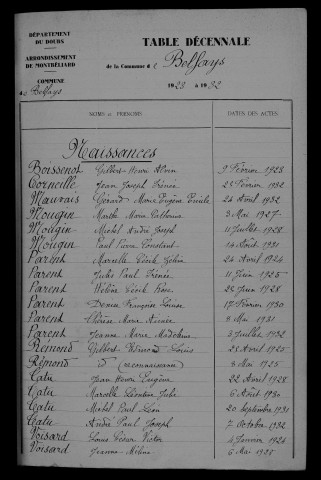 DÉPARTEMENT
DU DOUBS
ARRONDISSEMENT
DE MONTBÉLIARD
COMMUNE
de Belfays
TABLE DÉCENNALE
de la Commune de Belfays
1923 à 1932
NOMS et PRÉNOMS DATES DES ACTES
Naissances
Boissenot Gilbert Henri 9 Février 1928
Corneille Jean Joseph Irénée 25 Février 1932
Mauvais Gérard Marie Eugène Emile 24 Avril 1932
Mougin Marthe Marie 3 Mai 1927
Mougin Michel André Joseph 11 Juillet 1928
Mougin Paul Pierre Constant 14 Août 1931
Parent Marcelle Cécile 24 Avril 1924
Parent Julie Paul Irénée 11 Juin 1925
Parent Hélène Cécile 28 Juin 1928
Parent Denise Françoise Louise 17 Février 1930
Parent Thérèse Marie 8 Mai 1931
Parent Jeanne Marie 5 Juillet 1932
Rémond Gilbert Rémond Louis 28 Avril 1925
Rémond d° (reconnaissance) 8 Mai 1925
Catu Jean Henri Eugène 22 Avril 1928
Catu Marcelle Julie 6 Août 1930
Catu Michel Paul Léon 20 Septembre 1931
Catu André Paul Joseph 7 Octobre 1932
Voisard Louis César Victor 4 Janvier 1924
Voisard Jeanne 6 Mai 1925